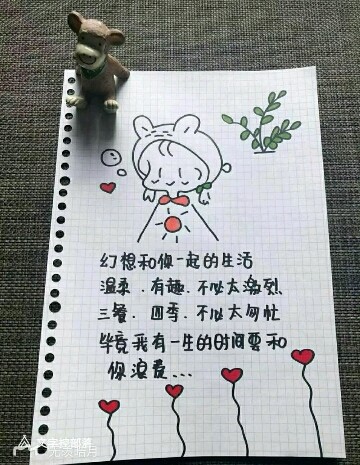 幻想和你一起的生活
温柔.有趣.不必太激烈
三餐.四季.不必太匆忙
毕竟我有一生的时间要和
你浪费...